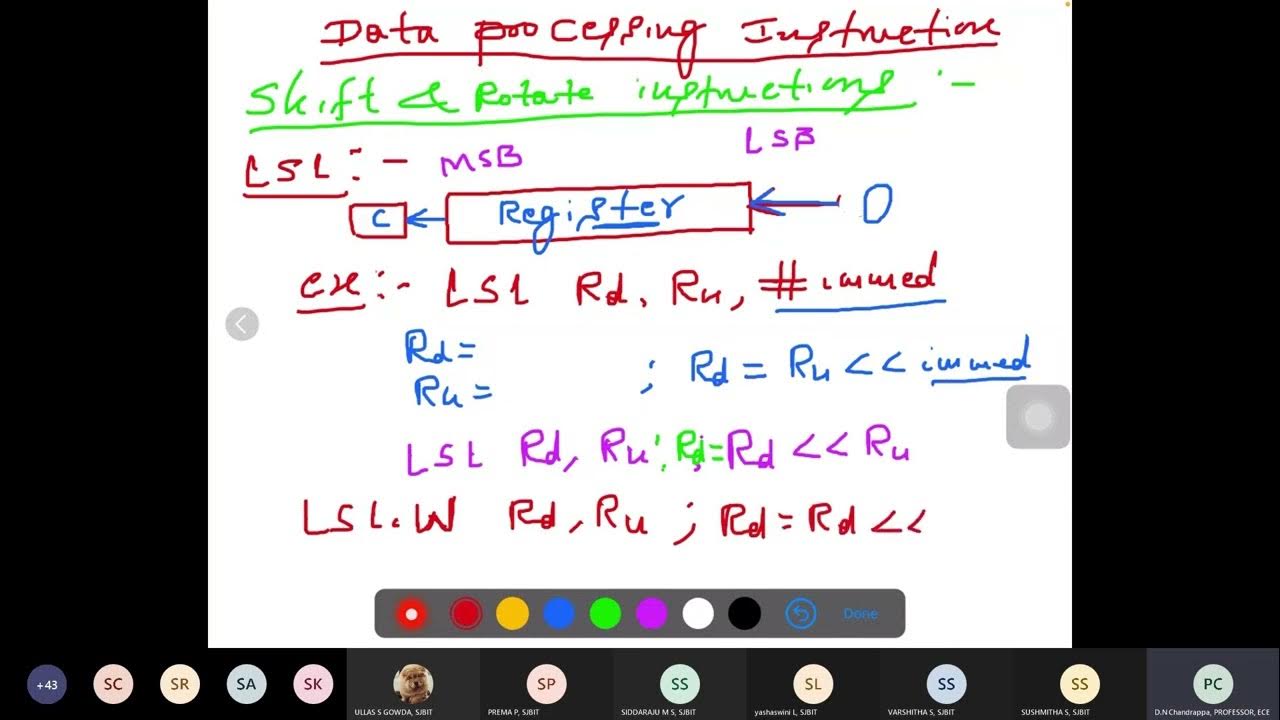 Data processing Instruction
Shift & Rotate instructions :-
LSL :- MSB LSB
C Register 0
ex :- LSL Rd, Rn, #immed
Rd =
Rn = ; Rd = Rn << immed
LSL Rd, Rn ; Rd = Rd << Rn
LSL.W Rd, Rn ; Rd = Rd <<
Done
+43 SC SR SA SK SP SS SL SS SS PC
ULLAS S GOWDA, SJBIT PREMA P, SJBIT SIDDARAJU M S, SJBIT yashaswini L, SJBIT VARSHITHA S, SJBIT SUSHMITHA S, SJBIT D.N Chandrappa, PROFESSOR, ECE